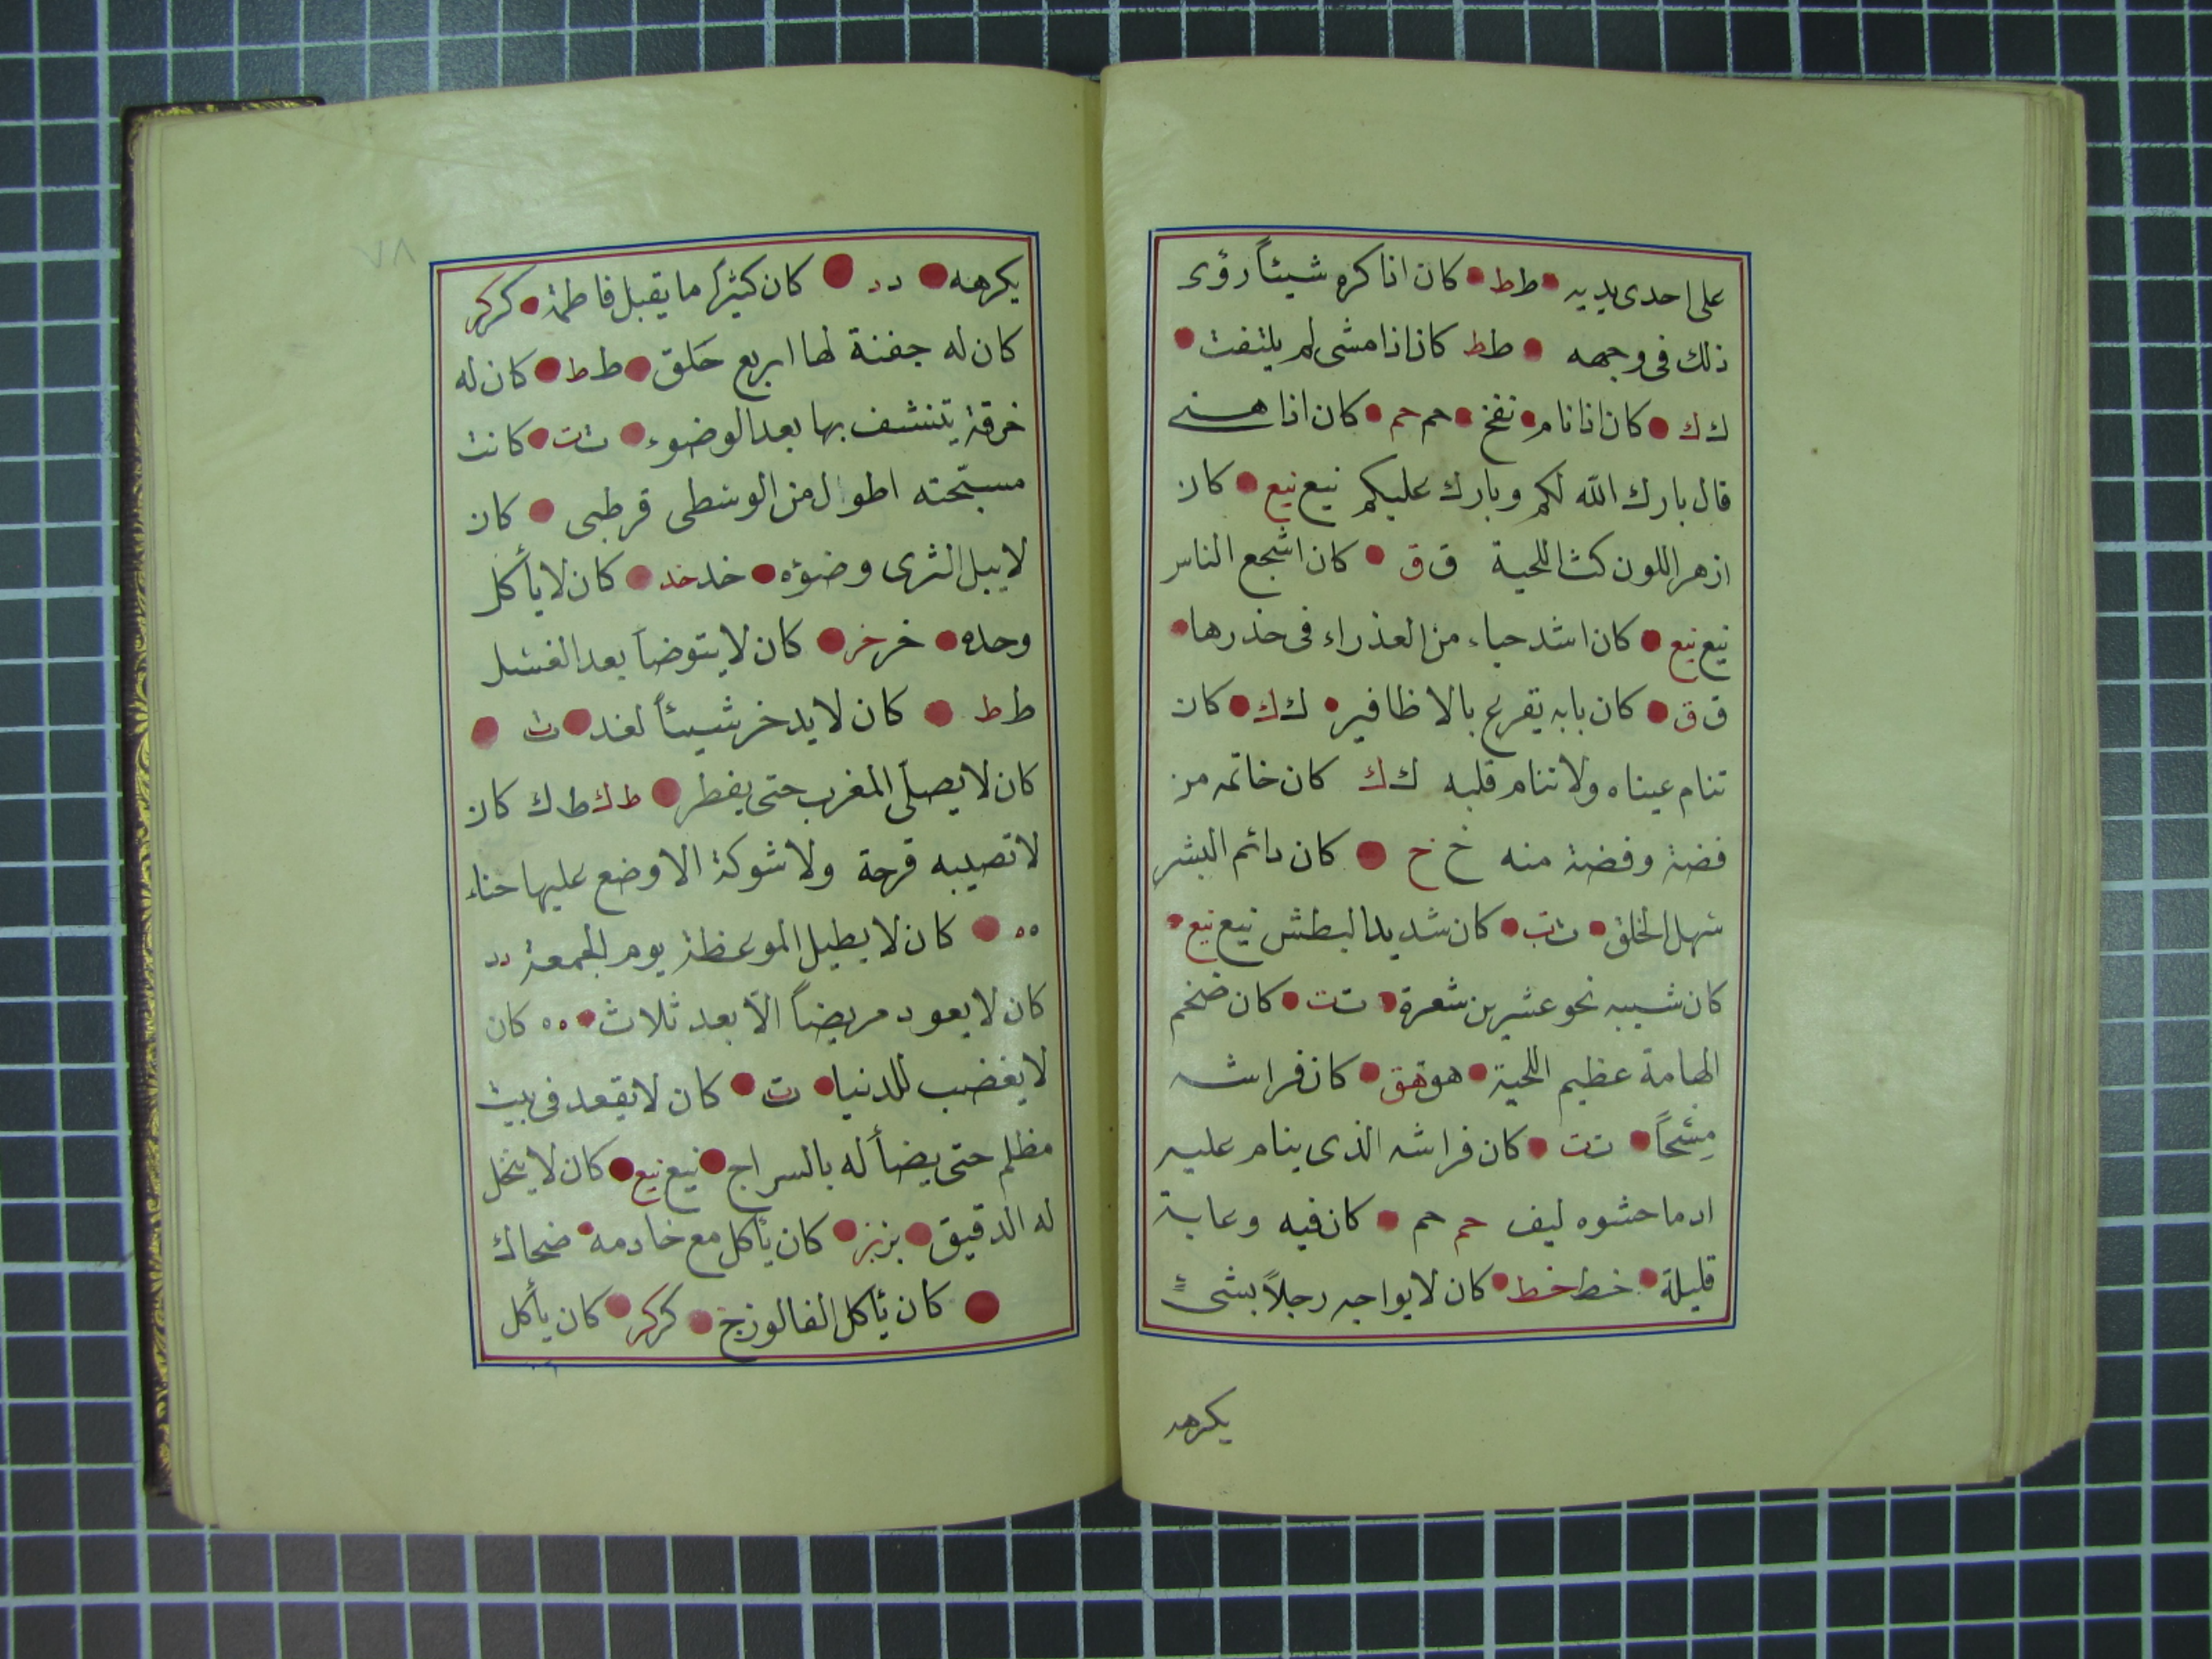 على احدى يديه ط ط كان اذا كره شيئاً رؤى
ذلك فى وجهه ط ط كان اذا مشى لم يلتفت
ك ك كان اذا نام نفخ حم حم كان اذا هنى
قال بارك الله لكم وبارك عليكم نيع نيع كان
ازهر اللون كث اللحية ق ق كان اشجع الناس
نيع نيع كان اشد حياء من العذراء فى خذرها
ق ق كان بابه يقرع بالاظافير ك ك كان
تنام عيناه ولا تنام قلبه ك ك كان خاتمه من
فضة وفضة منه خ خ كان دائم البشر
سهل الخلق ت ت كان شديد البطش نيع نيع
كان شيبه نحو عشرين شعرة ت ت كان ضخم
الهامة عظيم اللحية هق هق كان فراشه
مِسْحاً ت ت كان فراشه الذى ينام عليه
ادما حشوه ليف حم حم كان فيه وعابة
قليلة خط خط كان لا يواجه رجلاً بشىءٍ
يكرهه
٧٨
يكرهه د د كان كثيرًا ما يقبل فاطمة كر كر
كان له جفنة لها اربع حَلق ط ط كان له
خرقة يتنشف بها بعد الوضوء ت ت كانت
مسبّحته اطول من الوسطى قرطبى كان
لا يبل الثرى وضوؤه خد خد كان لا يأكل
وحده خر خر كان لا يتوضأ بعد الغسل
ط ط كان لا يدخر شيئاً لغد ت
كان لا يصلّى المغرب حتى يفطر ط ك ط ك كان
لا تصيبه قرحة ولا شوكة الا وضع عليها حناء
ه ه كان لا يطيل الموعظة يوم الجمعة د د
كان لا يعود مريضاً الّا بعد ثلاث ه ه كان
لا يغضب للدنيا ت كان لا يقعد فى بيت
مظلم حتى يضأ له بالسراج نيع نيع كان لا ينخل
له الدقيق بز بز كان يأكل مع خادمه ضحاك
كان يأكل الفالوزخ كر كر كان يأكل